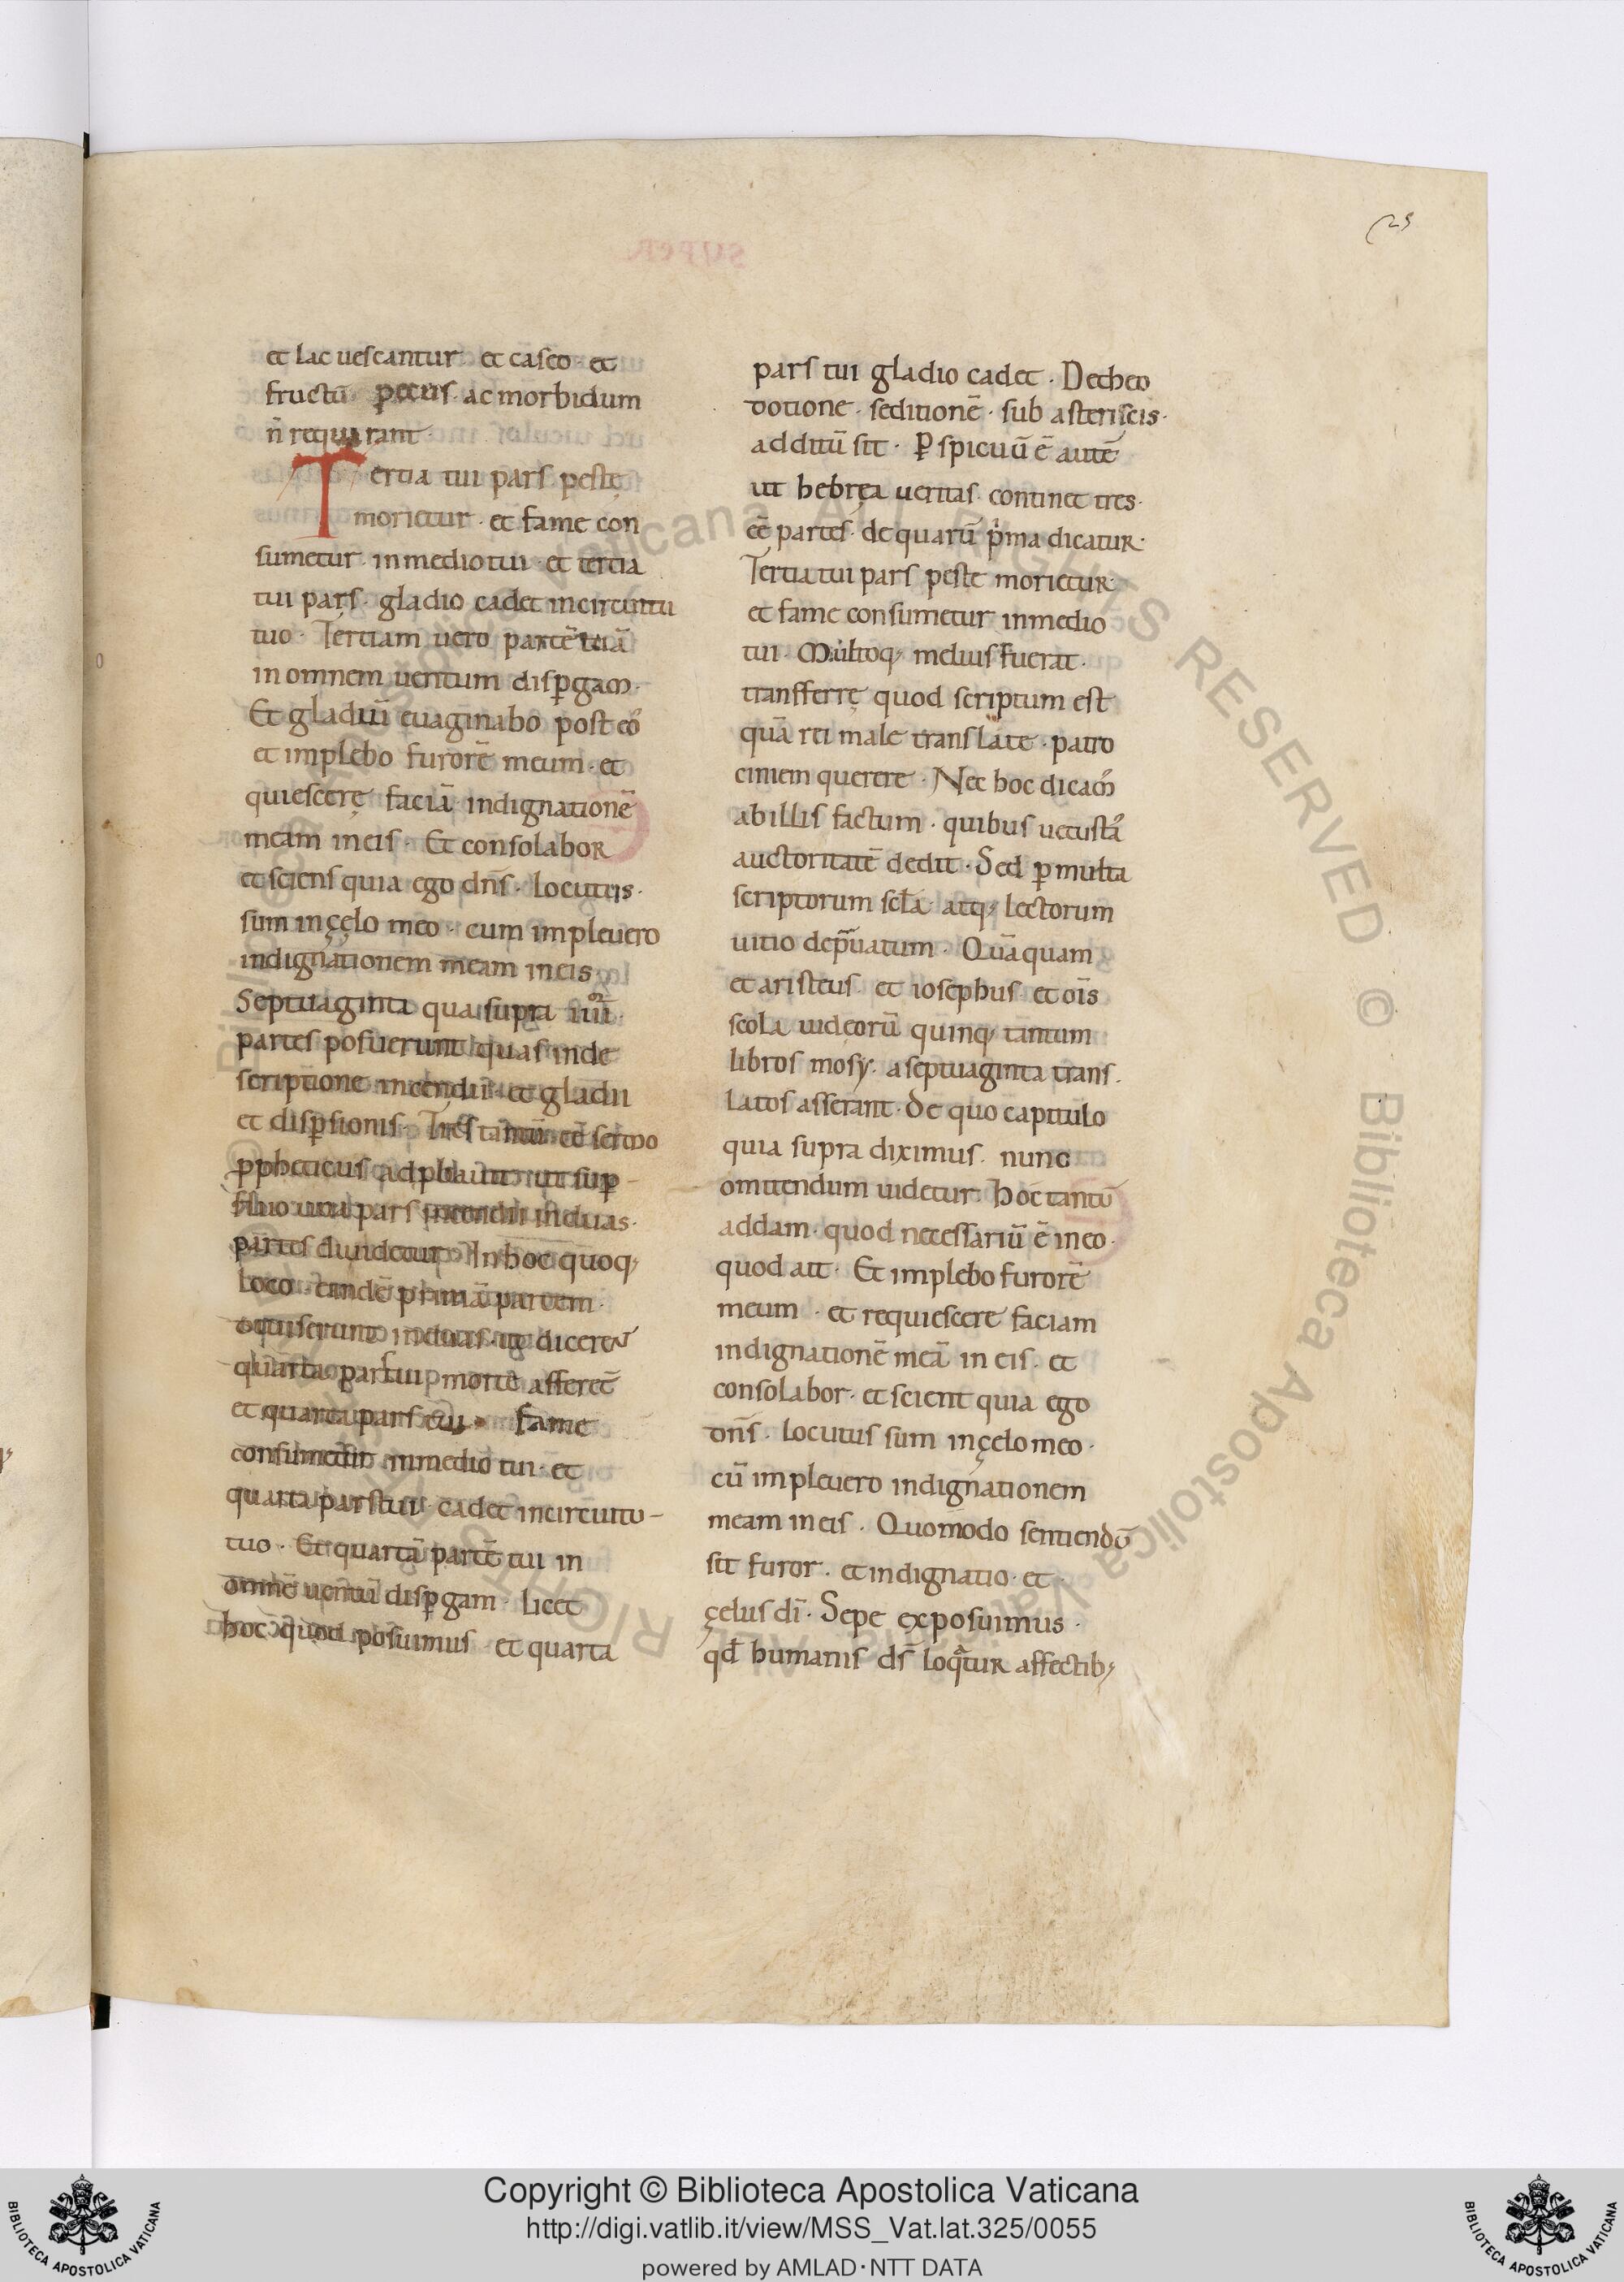 25
et lac uescantur et caseo et
fructu pecus ac morbidum
n̄ requirant
Tertia tui pars peste
morietur · et fame con
sumetur in medio tui · et tertia
tui pars · gladio cadet in circuitu
tuo · Tertiam uero partē tuā
in omnem uentum disꝑgam ·
Et gladiū euaginabo post eos
et implebo furorē meum · et
quiescerę faciā indignationē
meam in eis · Et consolabor
et sciens quia ego dn̄s · locutus ·
sum in çęlo meo · cum impleuero
indignationem meam in eis
Septuaginta qua supra
partes posuerunt quas in de
scriptione incendii et gladii
et disꝑsionis · Tres tantū
ꝓpheticus
una pars incendii in duas ·
partes In hoc quoq;
loco eandē primā partem ·
in duas ut
quarta pars tui morte afferet
et quarta pars tui fame
consumetur in medio tui · et
quarta pars tui cadet in circuitu -
tuo · Et quartā partē tui in
omnē uentū disꝑgam · licet
hoc quod posuimus et quarta
pars tui gladio cadet · De theo
dotione · seditionē · sub asteriscis ·
additū sit · ꝑspicuū ē autē
ut hebręa ueritas continet tres ·
eē partes · de quarū pͥma dicatur ·
Tertia tui pars peste morietur
et fame consumetur in medio
tui · Multoq; melius fuerat ·
transferrę quod scriptum est
quā rei male translate · patro
ciniem querere · Nec hoc dicam
ab illis factum · quibus uetusta
auctoritatē dedit · Sed ꝑ multa
scriptorum scła atq; lectorum
uitio depͣuatum · Quāquam
et aristeus et iosephus et om̄s
scola iudeorū quinq; tantum
libros mosy · a septuaginta trans ·
latos asserant · de quo capitulo
quia supra diximus · nunc
omittendum uidetur · hoc tantū
addam · quod necessariū ē in eo ·
quod ait · Et implebo furorē
meum · et requiescere faciam
indignationē meā in eis · et
consolabor · et scient quia ego
dn̄s · locutus sum in çęlo meo ·
cū impleuero indignationem
meam in eis · Quomodo sentiendū
sit furor · et indignatio · et
çelus dī · Sepe exposuimus ·
qd̄ humanis ds̄ loqͣtur affectib;
SUPER
Biblioteca Apostolica Vaticana ALL RIGHTS RESERVED © Biblioteca Apostolica Vaticana ALL RIGHTS RESERVED ©
Copyright © Biblioteca Apostolica Vaticana
http://digi.vatlib.it/view/MSS_Vat.lat.325/0055
powered by AMLAD·NTT DATA
BIBLIOTECA APOSTOLICA VATICANA
BIBLIOTECA APOSTOLICA VATICANA